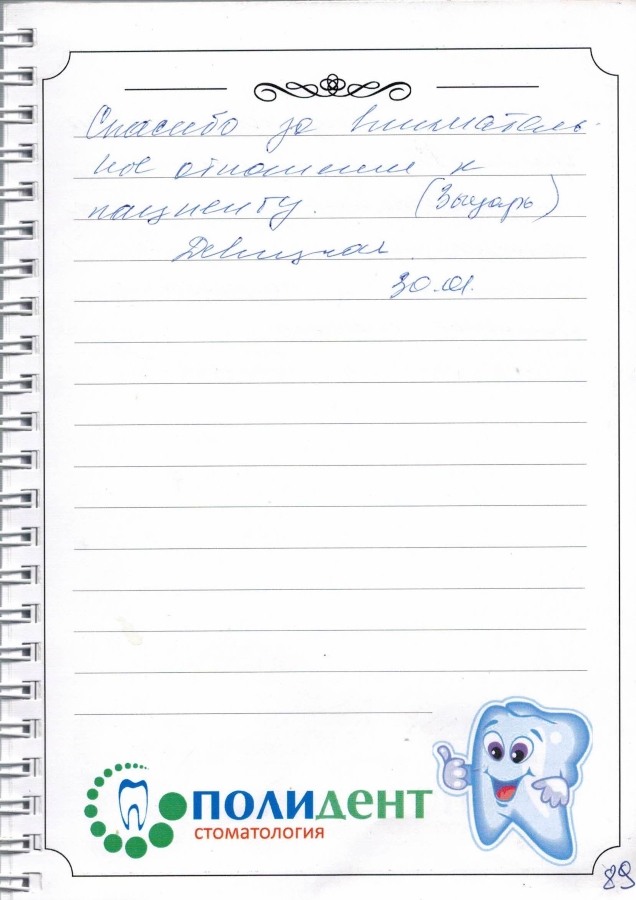 Спасибо за вниматель-
ное отношение к
пациенту. (Зыцарь)
Девицкая
30.01.
полидент
стоматология
89